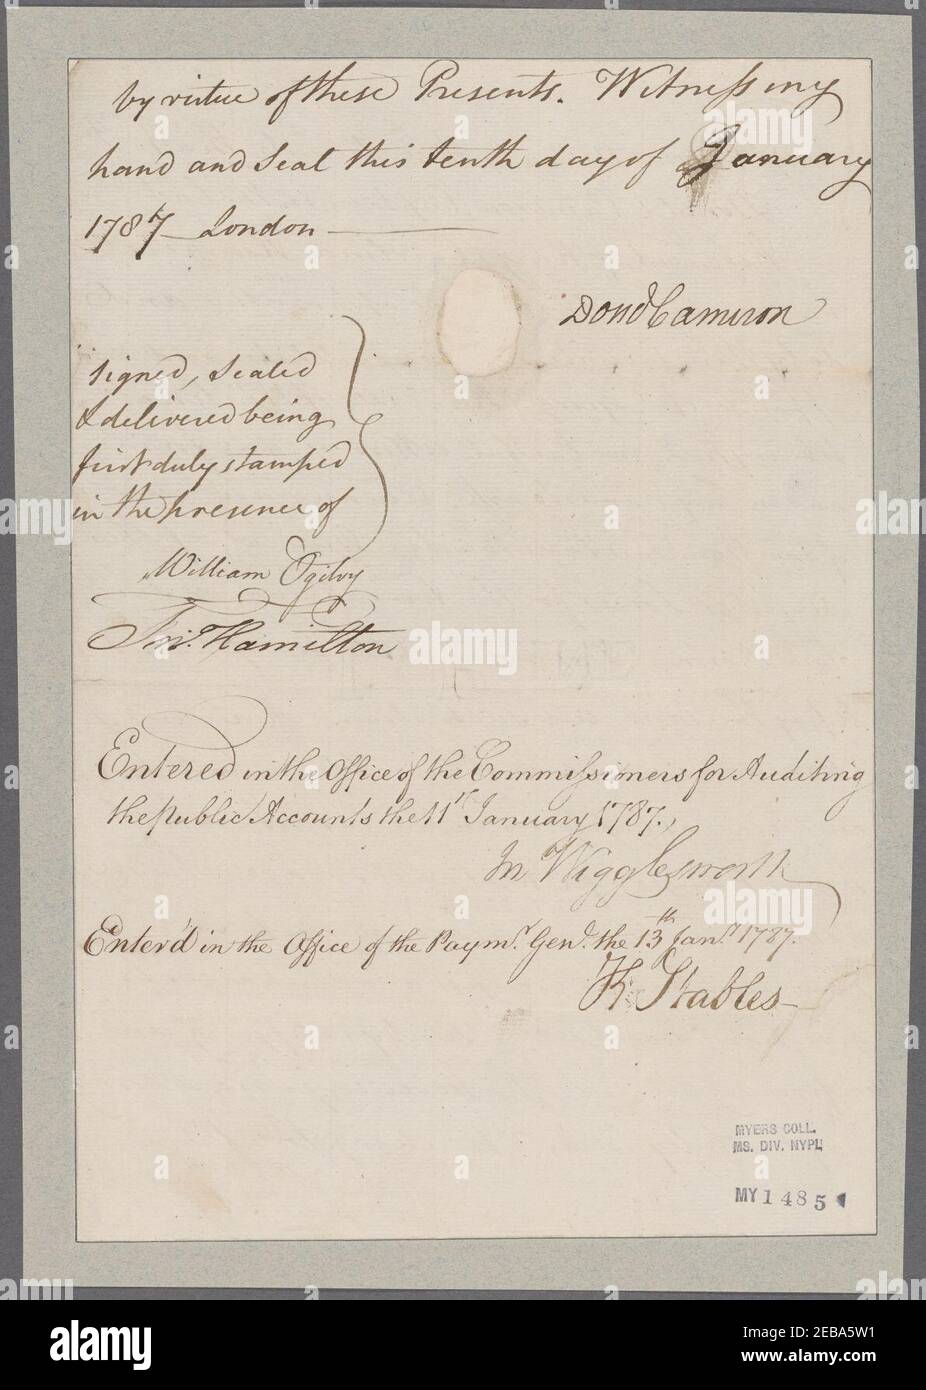 by virtue of these Presents. Witness my
hand and Seal this tenth day of January
1787 London
Dond Cameron
signed, Sealed
& delivered being
first duly stamped
in the presence of
William Ogilvy
Jno. Hamilton
Entered in the Office of the Commissioners for Auditing
the Public Accounts the 11th January 1787.
Jn Wigglesworth
Enter'd in the Office of the Paymr. Genl. the 13th Jany. 1787.
Stables
MYERS COLL.
MS. DIV. NYPL
MY 1485
alamy
Image ID: 2EBA5W1
www.alamy.com